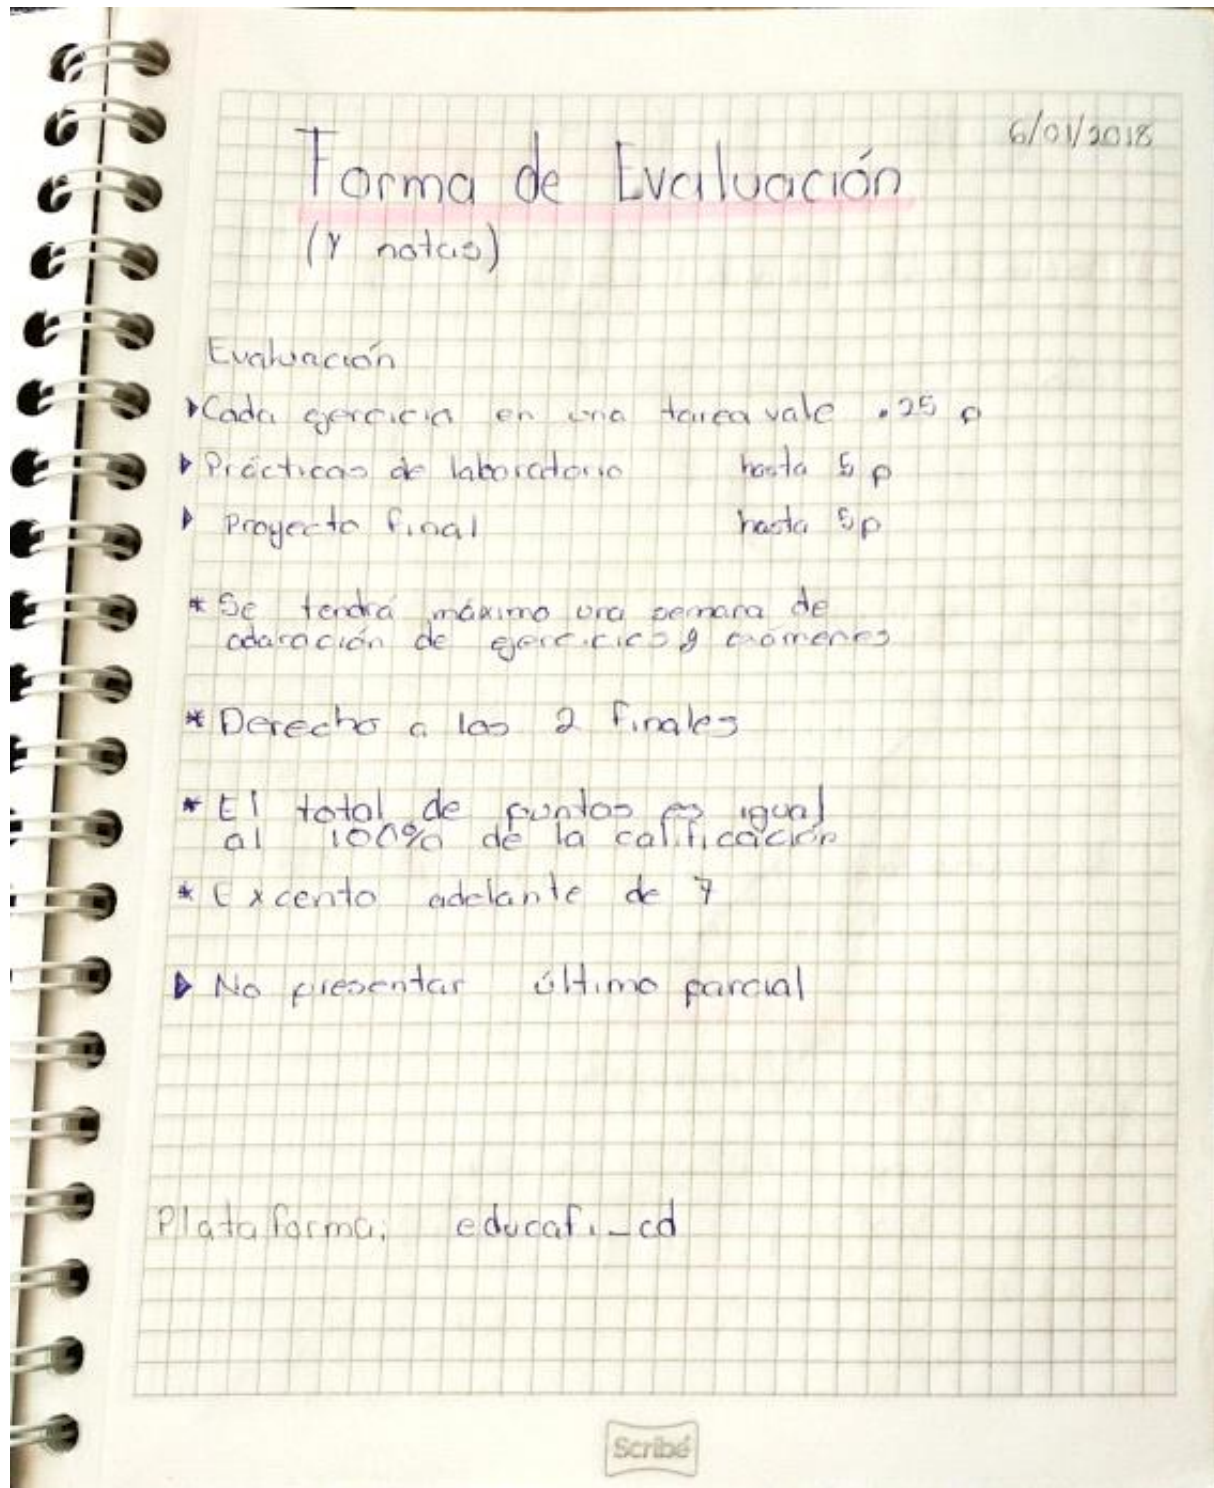 6/01/2018
Forma de Evaluación
(Y notas)
Evaluación
Cada ejercicio en una tarea vale .25 p
Prácticas de laboratorio hasta 5 p
Proyecto final hasta 5p
* Se tendrá máximo una semana de
aclaración de ejercicios y exámenes
* Derecho a los 2 finales
* El total de puntos es igual
al 100% de la calificación
* Excento adelante de 7
No presentar último parcial
Plataforma: educafi_cd
Scribé